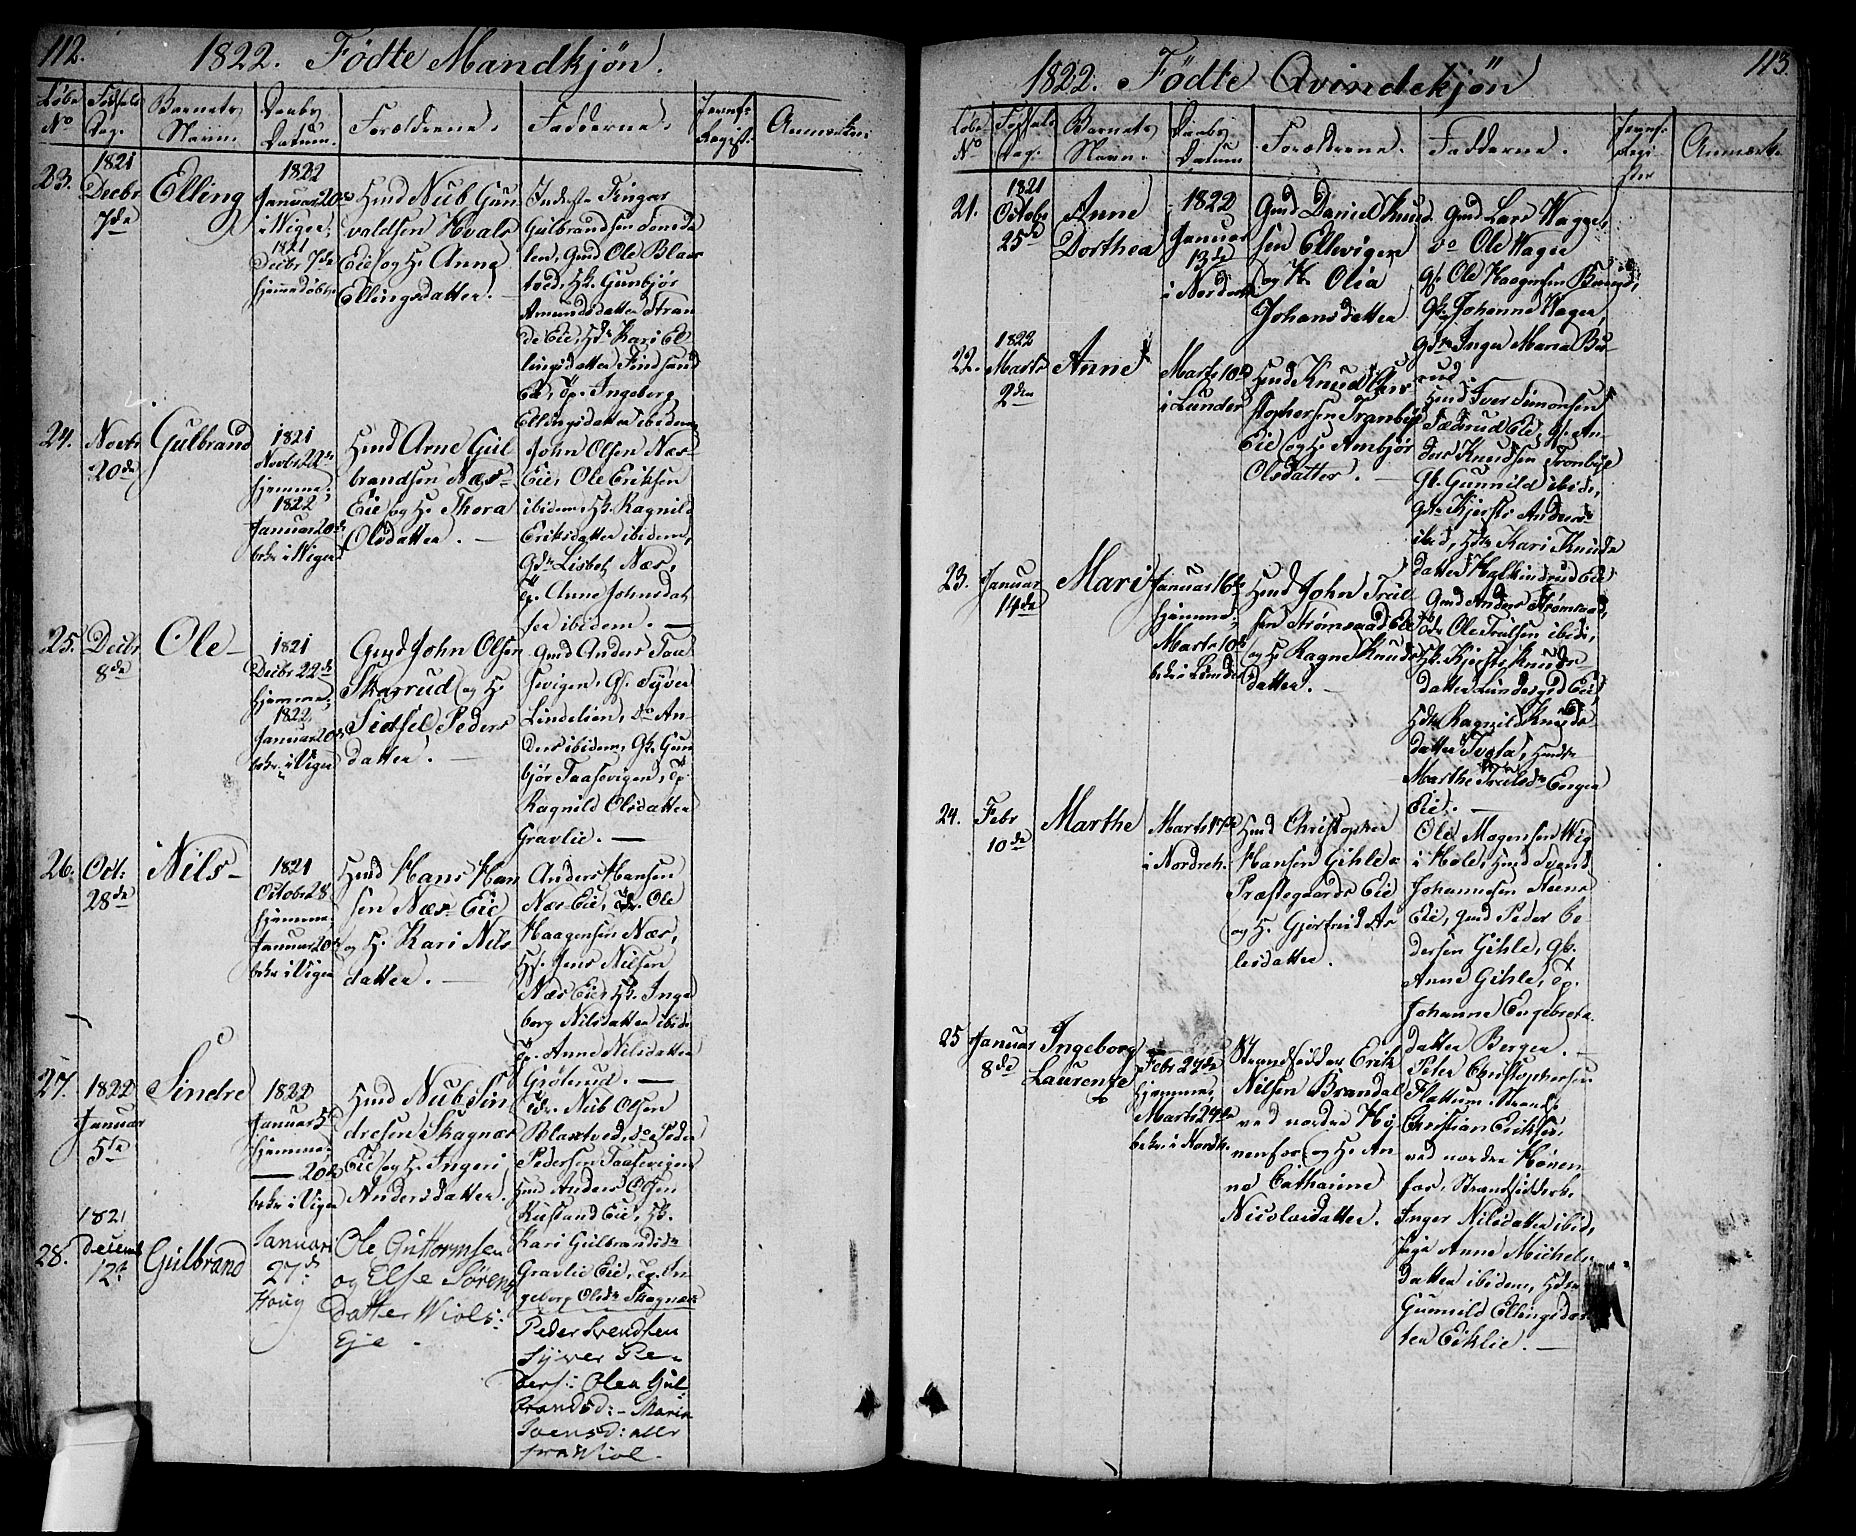 112.
1822. Födte Mandkjön.
Løbe No
Födsels Dag.
Barnets Navn.
Daabs Datum.
Forældrene.
Fadderne.
Jevnf. Regist.
Anmærkn:
23.
1821
Decbr
7de
Elling
1822
Januar 20de
i Wiger,
1821
Decbr 7de
hjemmedøbt
Hmd Nub Gun
valdsen Hvals
Eie og H. Anne
Ellingsdatter.
Gulbrandsen
len, Gmd Ole Blax
tved, Hk. Gunbjør
Amundsdatter Stran
de Eie, Hdr Kari El
lingsdatter Findsand
Eie, Tp. Ingeborg
Ellingsdatter ibidem
24.
Novbr
20de
Gulbrand
1821
Novbr 22de
hjemme,
1822
Januar 20de
bekr i Wiger
Hmd Arne Gul
brandsen Næs-
Eie og H. Thora
Olsdatter.
John Olsen Næs-
Eie, Ole Eriksen
ibidem, Hk. Ragnild
Eriksdatter ibidem,
Gdr Lisbet Næs,
Tp. Anne Johnsdat
ter ibidem.
25.
Decbr
8de
Ole
1821
Decbr 22de
hjemme,
1822
Januar 20de
bekr. i Viger
Gmd John Olsen
Skarrud og H.
Sidsel Peders
datter.
Gmd Anders Taa
sevigen, Gf. Syver
Lindelien, do An-
ders ibidem, Gk. Gun
bjør Taasevigen, Tp.
Ragnild Olsdatter
Gravlie.
26.
Oct:
28de
Nils
1821
Octobr 28
hjemme
Januar 20de
bekr i Viger
Hmd Hans Han
sen Næs-Eie
og H. Kari Nils
datter.
Anders Hansen
Næs-Eie, Ole
Haagensen Næs,
Hf. Jens Nilsen
Næs Eie, Hk. Inge
borg Nilsdatter ibid:
Tp. Anne Nilsdatter
Grøterud.
27.
1822
Januar
5te
Sindre
1822
Januar 5te
hjemme
— 20de
bekr i Viger
Hmd Nub Sin
dresen Skagnæs
Eie og H. Ingeri
Andersdatter.
Nub Olsen
Blaxtved, do Peder
Pedersen Taasevigen
Hmd Anders Olsen
Eie, Hk.
Kari Gulbrandsdr
Gravlie Eie, Tp. In
geborg Olsdr Skagnæs
28.
1821
Decemb
12t
Gulbrand
Januar
27de
Houg
Ole Guttormsen
og Else Sörens
datter Wiols:
Eje.
Peder Svendsen
Syver Pe-
ders: Olea Gul
brandsd: - Maria
Svensd: alle
fra Wiol.
113.
1822. Födte Qvindekjön
Løbe No
Fødsels Dag.
Barnets Navn.
Daabs Datum
Forældrene.
Fadderne.
Jevnf. Regi- ster
Anmærk.
21.
1821
Octobr
25de
Anne
Dorthea
1822
Januar
13de
i Norderh
Gmd Daniel Knud
sen Ellevigen
og H. Olia
Johansdatter
Gmd Lars Wager
do Ole Wager
gf. Ole Haagensen
gk. Johanne Wager,
Inger Maria Bu-
rud.
22.
1822
Marts
2den
Anne
Marts 10de
i Lunder
Hmd Knud Chri
stophersen Tranbye
Eie og H. Ambjør
Olsdatter.
Hmd Iver Simonsen
Eie, gf. An-
ders Knudsen Tronbye
gk. Gunnild ibid,
Kjersti Anders-
ibid, Hdr Kari Knuds
datter Eie
23.
Januar
14de
Mari
Januar 16de
hjemme,
Marts 10de
bekr i Lunder
Hmd John Truel
sen Strømsaad Eie
og H. Ragne Knuds
datter.
Gmd Anders Strømsaad,
Ole Truelsen ibid:,
Hk. Kjersti Knuds-
datter Lundesgd Eie
Hdr Ragnild Knuds
datter
Marthe
Eie.
24.
Febr
10de
Marthe
Marts 17de
i Nordreh.
Hmd Christopher
Hansen Gihle
Præstegaards Eie
og H. Gjertrud As
lesdatter.
Ole Mogensen Wig
i Hole, Hmd Svend
Johannesen
Eie, Gmd Peder Pe
dersen Gihle, gk.
Anne Gihle, Tp.
Johanne Engebrets
datter Berger.
25
Januar
8de
Ingeborg
Laurentze
Febr 27de
hjemme,
Marts 24de
bekr i Nordr.
Strandsidder Erik
Nilsen Brandal
ved nordre Hø
nenfos og H. An
ne Cathrine
Nicolaisdatter.
Peter Christophersen
Flattum, Strands.
Christian Eriksen,
ved nordre Hønen
fos, Strandsidderk.
Inger Nilsdatter ibid,
Anne Michels
datter ibidem, Hdr
Gunnild Ellingsdat
ter Eiklie.